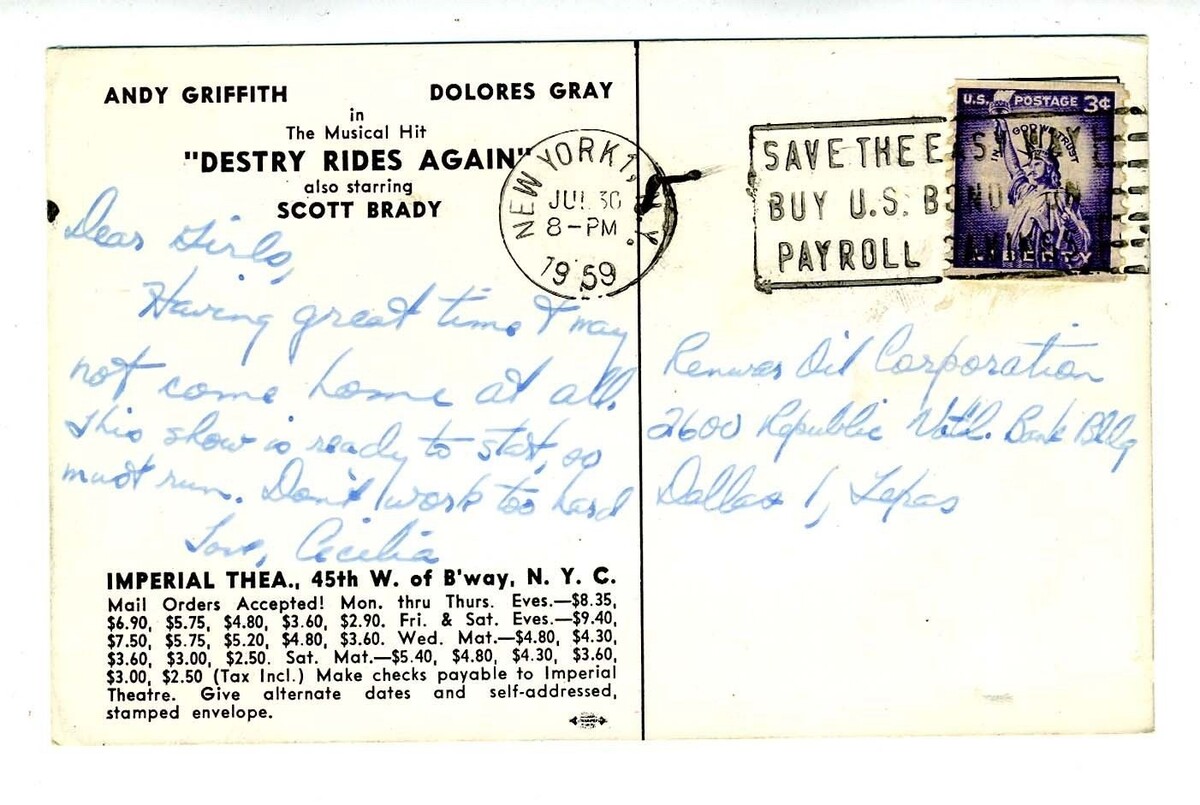 ANDY GRIFFITH DOLORES GRAY
in
The Musical Hit
"DESTRY RIDES AGAIN"
also starring
SCOTT BRADY
Dear Girls,
Having great time & may
not come home at all.
This show is ready to start, so
must run. Don't work too hard
Love, Cecilia
IMPERIAL THEA., 45th W. of B'way, N. Y. C.
Mail Orders Accepted! Mon. thru Thurs. Eves.—$8.35,
$6.90, $5.75, $4.80, $3.60, $2.90. Fri. & Sat. Eves.—$9.40,
$7.50, $5.75, $5.20, $4.80, $3.60. Wed. Mat.—$4.80, $4.30,
$3.60, $3.00, $2.50. Sat. Mat.—$5.40, $4.80, $4.30, $3.60,
$3.00, $2.50 (Tax Incl.) Make checks payable to Imperial
Theatre. Give alternate dates and self-addressed,
stamped envelope.
NEW YORK 1, N.Y.
JUL 30
8-PM
1959
SAVE THE EASY WAY
BUY U.S. BONDS ON
PAYROLL SAVINGS
U.S. POSTAGE 3¢
IN GOD WE TRUST
LIBERTY
Renwar Oil Corporation
2600 Republic Natl. Bank Bldg
Dallas 1, Texas